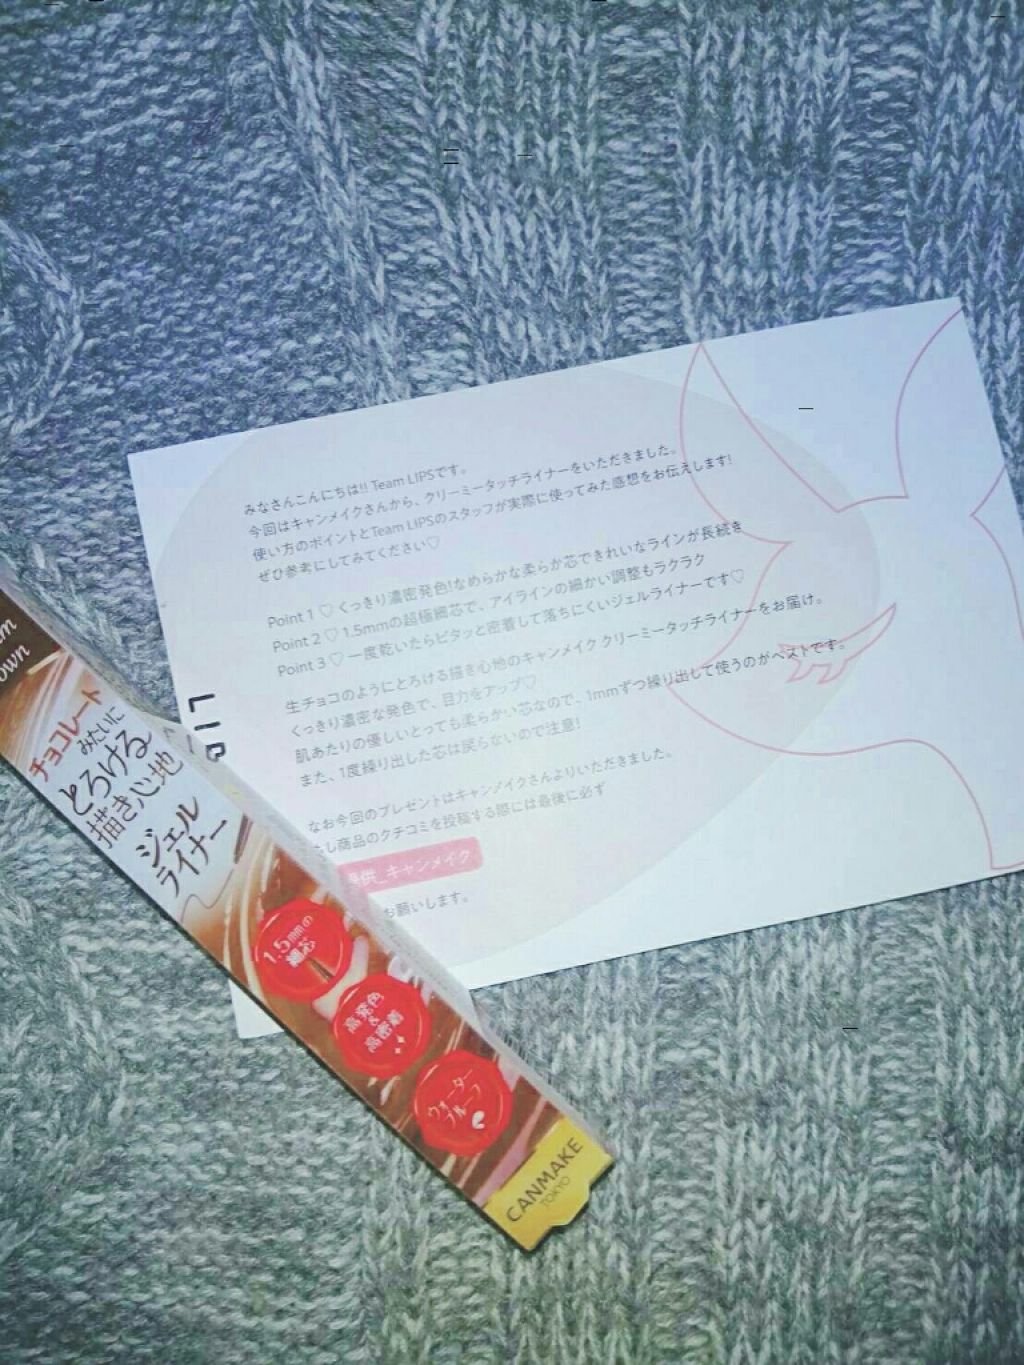 みなさんこんにちは!! Team LIPSです。
今回はキャンメイクさんから、クリーミータッチライナーをいただきました。
使い方のポイントとTeam LIPSのスタッフが実際に使ってみた感想をお伝えします!
ぜひ参考にしてみてください♡
Point 1 ♡ くっきり濃密発色!なめらかな柔らか芯できれいなラインが長続き
Point 2 ♡ 1.5mmの超極細芯で、アイラインの細かい調整もラクラク
Point 3 ♡ 一度乾いたらピタッと密着して落ちにくいジェルライナーです♡
生チョコのようにとろける描き心地のキャンメイク クリーミータッチライナーをお届け。
くっきり濃密な発色で、目力をアップ♡
肌あたりの優しいとっても柔らかい芯なので、1mmずつ繰り出して使うのがベストです。
また、1度繰り出した芯は戻らないので注意!
なお今回のプレゼントはキャンメイクさんよりいただきました。
し商品のクチコミを投稿する際には最後に必ず
提供_キャンメイク
お願いします。
LIP
own
チョコレート
みたいに
とろける
描き心地
ジェル
ライナー
1.5mmの
細芯
高発色
&
高密着
ウォーター
プルーフ
CANMAKE
TOKYO